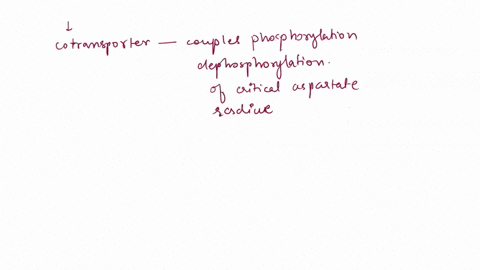 ↓
cotransporter — couples phosphorylation
dephosphorylation.
of critical aspartate